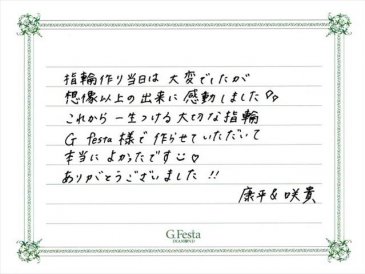 指輪作り当日は 大変でしたが
想像以上の出来に 感動しました♡♡
これから 一生つける 大切な指輪
G festa 様で 作らせていただいて
本当に よかったです☺♡
ありがとうございました!!
康平 & 咲貴
G.Festa
DIAMOND